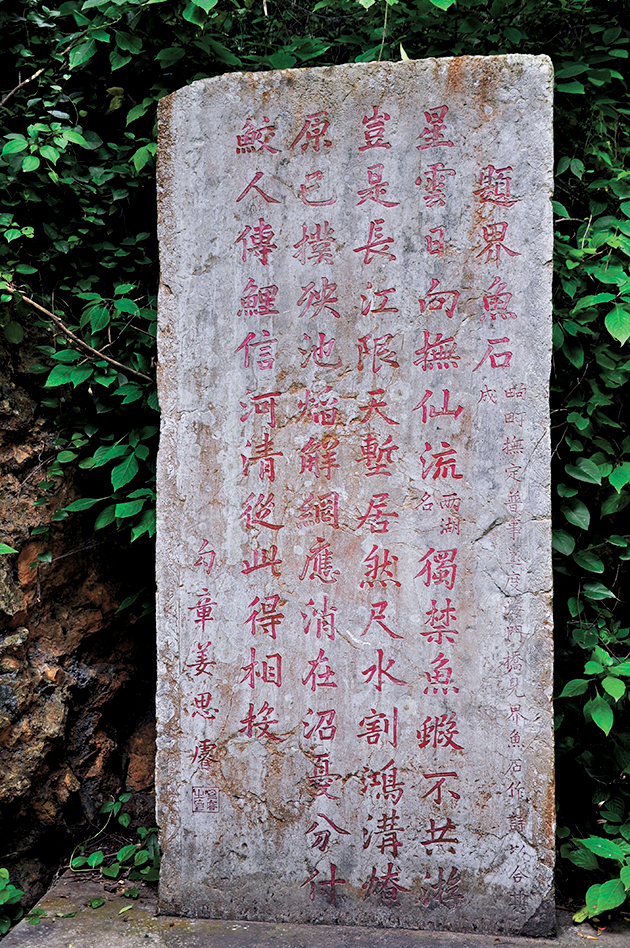 題界魚石
撫定普事 度海門橋見界魚石作
星雲日向撫仙流兩湖名獨禁魚蝦不共游
豈是長江限天塹居然尺水割鴻溝
原已撲殃池焰解網應消在沼憂分付
鮫人傳鯉信河清從此得相投
勾章姜思睿